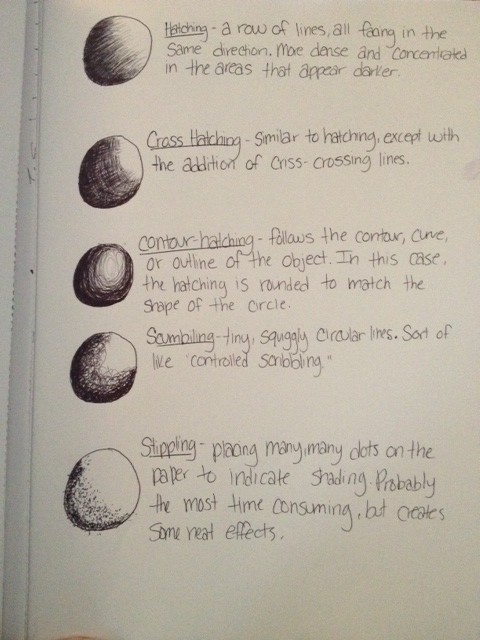 Hatching - a row of lines, all facing in the
same direction. More dense and concentrated
in the areas that appear darker.
Cross Hatching - Similar to hatching, except with
the addition of criss-crossing lines.
Contour-hatching - follows the contour, curve,
or outline of the object. In this case,
the hatching is rounded to match the
shape of the circle.
Scumbiling - tiny, squggly circular lines. Sort of
like "controlled scribbling."
Stippling - placing many, many dots on the
paper to indicate shading. Probably
the most time consuming, but creates
some neat effects.